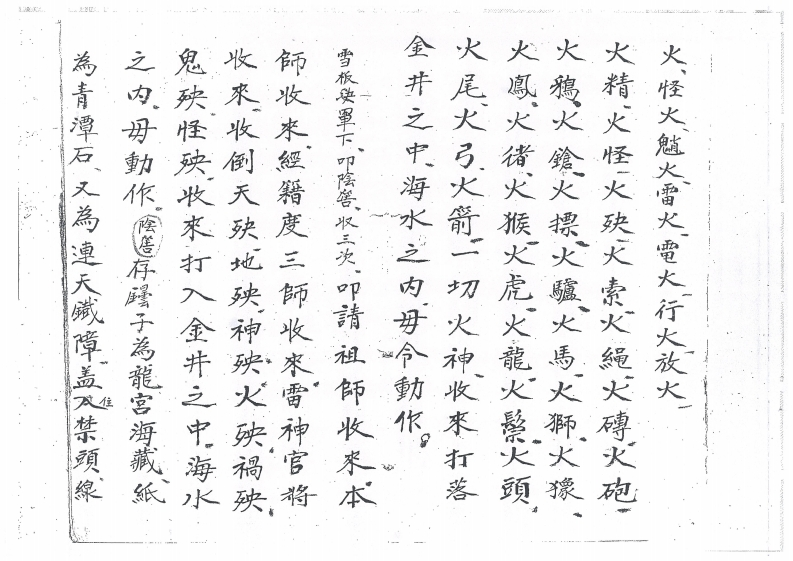 火怪火魈火雷火電火行火放火
火精火怪火殃火索火繩火磚火砲
火鴉火鎗火摽火驢火馬火獅火獴
火鳳火𤠉火猴火虎火龍火鬃火頭
火尾火弓火箭一切火神收來打落
金井之中海水之內毋令動作
雪板殃罩下叩陰僐收三次叩請祖師收來本
師收來經籍度三師收來雷神官將
收來收倒天殃地殃神殃火殃禍殃
鬼殃怪殃收來打入金井之中海水
之內毋動作陰僐存子為龍宮海藏紙
為青潭石又為連天鐵障盖入住禁頭線